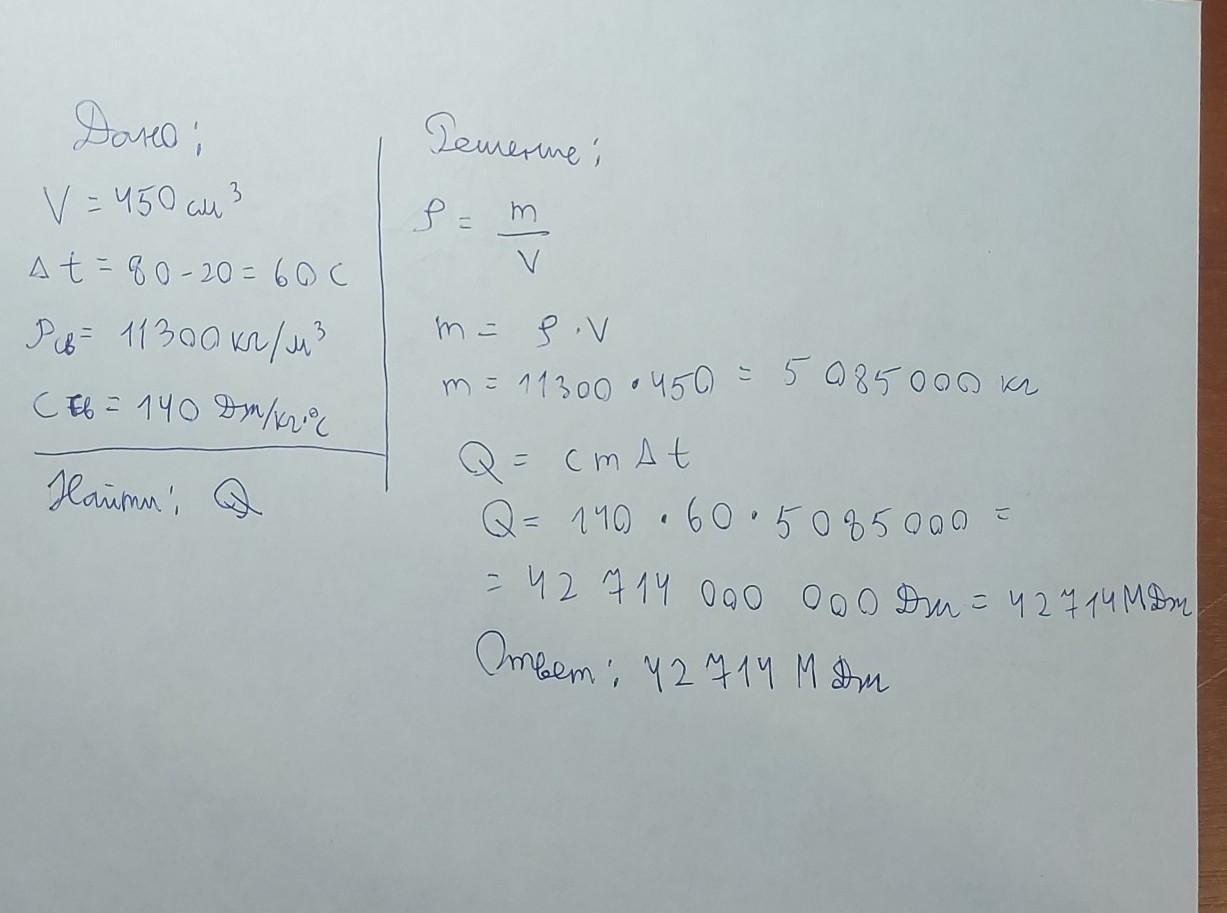 Дано:
V = 450 см³
Δt = 80-20 = 60 С
ρсв = 11300 кг/м³
Ссв = 140 Дж/кг·°С
Найти: Q
Решение:
ρ = m/V
m = ρ · V
m = 11300 · 450 = 5 085 000 кг
Q = c m Δ t
Q = 140 · 60 · 5 085 000 =
= 42 714 000 000 Дж = 42714 МДж
Ответ: 42 714 М Дж